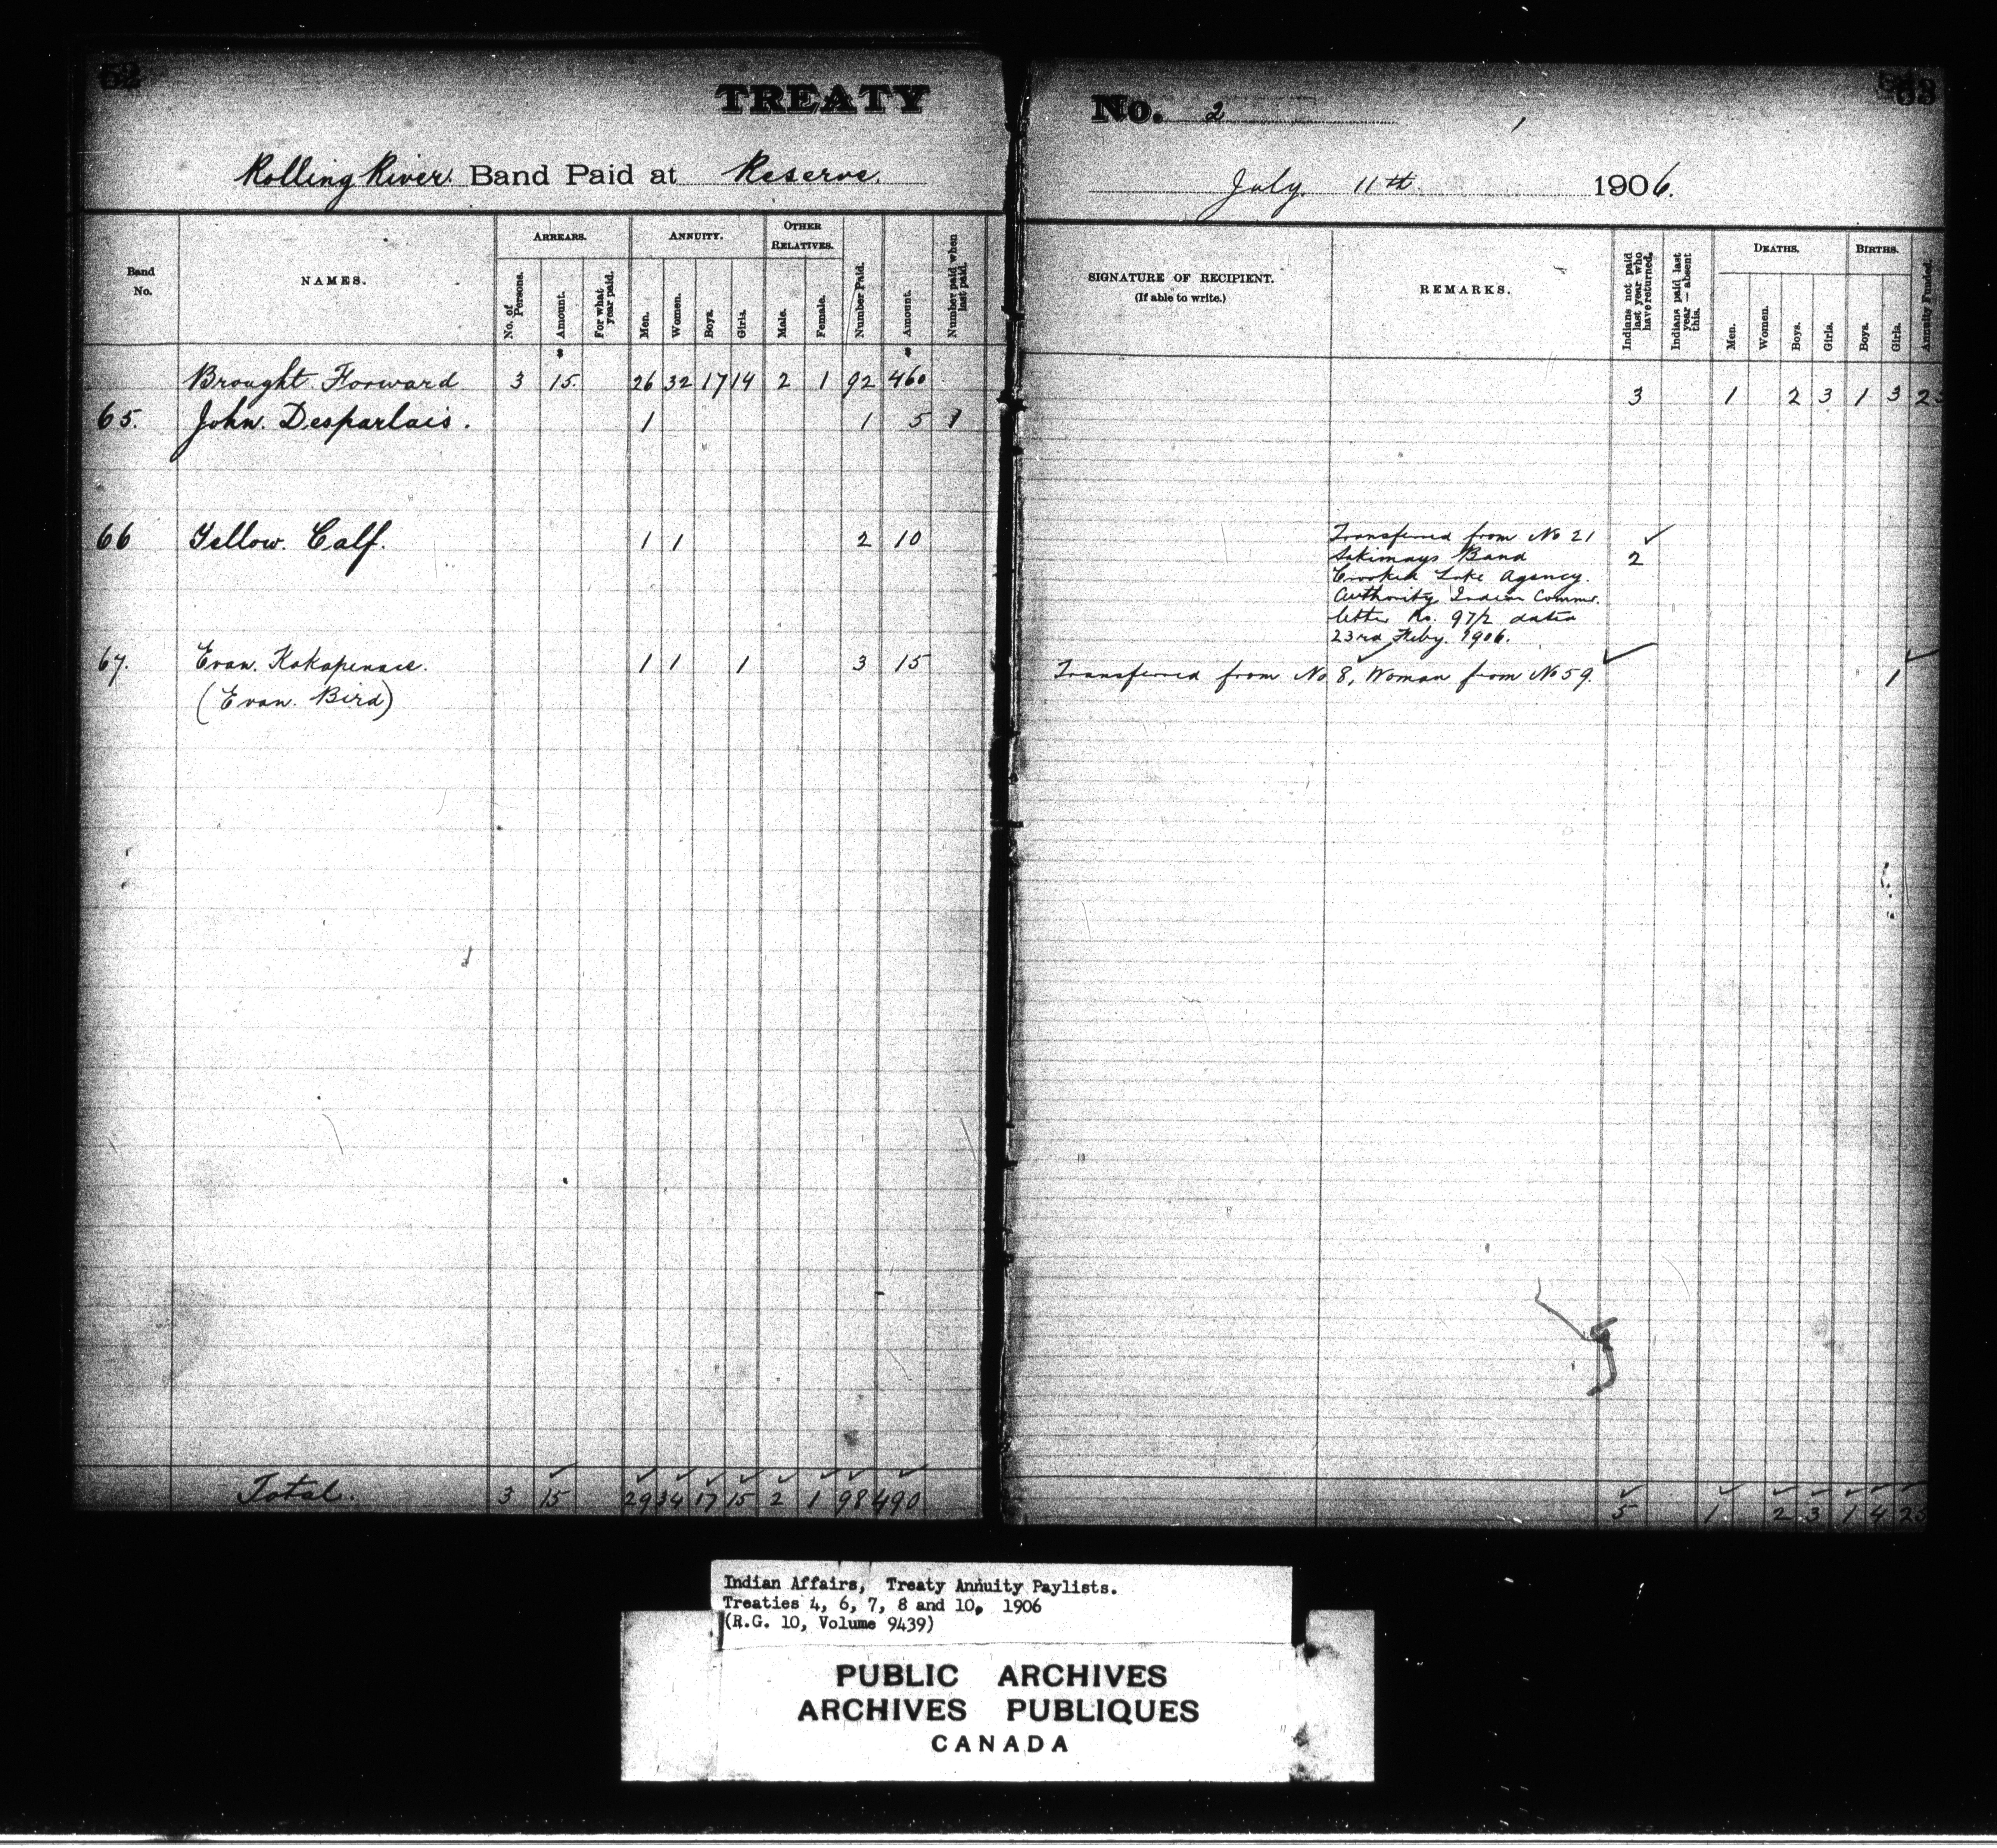 62
TREATY
No. 2
63
Rolling River Band Paid at Reserve.
July 11th 1906.
Band No.
NAMES.
ARREARS.
No. of Persons.
Amount.
For what year paid.
ANNUITY.
Men.
Women.
Boys.
Girls.
OTHER RELATIVES.
Male.
Female.
Number Paid.
Amount.
Number paid when last paid.
SIGNATURE OF RECIPIENT.
(If able to write.)
REMARKS.
Indians not paid last year who have returned.
Indians paid last year — absent this.
DEATHS.
Men.
Women.
Boys.
Girls.
BIRTHS.
Boys.
Girls.
Annuity Funded.
Brought Forward 3 15. 26 32 17 14 2 1 92 460 3 1 2 3 1 3
65. John. Desparlais. 1 1 5 1
66 Yellow. Calf. 1 1 2 10
Transferred from No 21
Sakimays Band 2
Crooked Lake Agency.
Authority Indian Commr.
letter No. 97/2 dated
23rd Feby. 1906.
67. Evan. Kakapenais. 1 1 1 3 15 Transferred from No 8, Woman from No 59. 1
(Evan. Bird)
Total. 3 15 29 34 17 15 2 1 98 490 5 1 2 3 1 4
Indian Affairs, Treaty Annuity Paylists.
Treaties 4, 6, 7, 8 and 10, 1906
(R.G. 10, Volume 9439)
PUBLIC ARCHIVES
ARCHIVES PUBLIQUES
CANADA